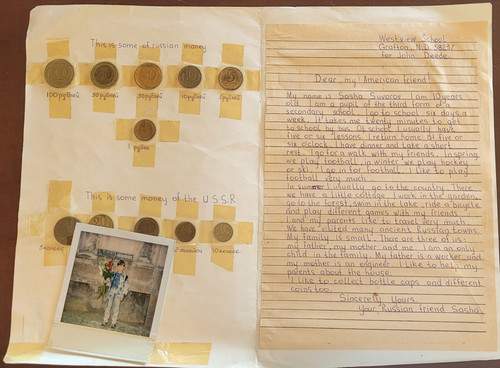 This is some of russian money
100 рублей
50 рублей
20 рублей
10 рублей
5 рублей
1 рубль
This is some money of the U.S.S.R
5 копеек
2 копейки
10 копеек
Westview School
Grafton, N.D. 58237
for John Deede
Dear my American friend!
My name is Sasha Suvorov. I am 10 years
old. I am a pupil of the third form of a
secondary school. I go to school six days a
week. It takes me twenty minutes to get
to school by bus. At school I usually have
five or six lessons. I return home at five or
six o'clock. I have dinner and take a short
rest. I go for a walk with my friends. In spring
we play football, in winter we play hockey
or ski. I go in for football. I like to play
football very much.
In summer I usually go to the country. There
we have a little cottage. I work in the garden,
go to the forest, swim in the lake, ride a bicycle
and play different games with my friends.
I and my parents like to travel very much.
We have visited many ancient Russian towns.
My family is small. There are three of us:
my father, my mother and me. I am an only
child in the family. My father is a worker and
my mother is an engineer. I like to help my
parents about the house.
I like to collect bottle caps and different
coins too.
Sincerely Yours,
Your Russian friend Sasha.